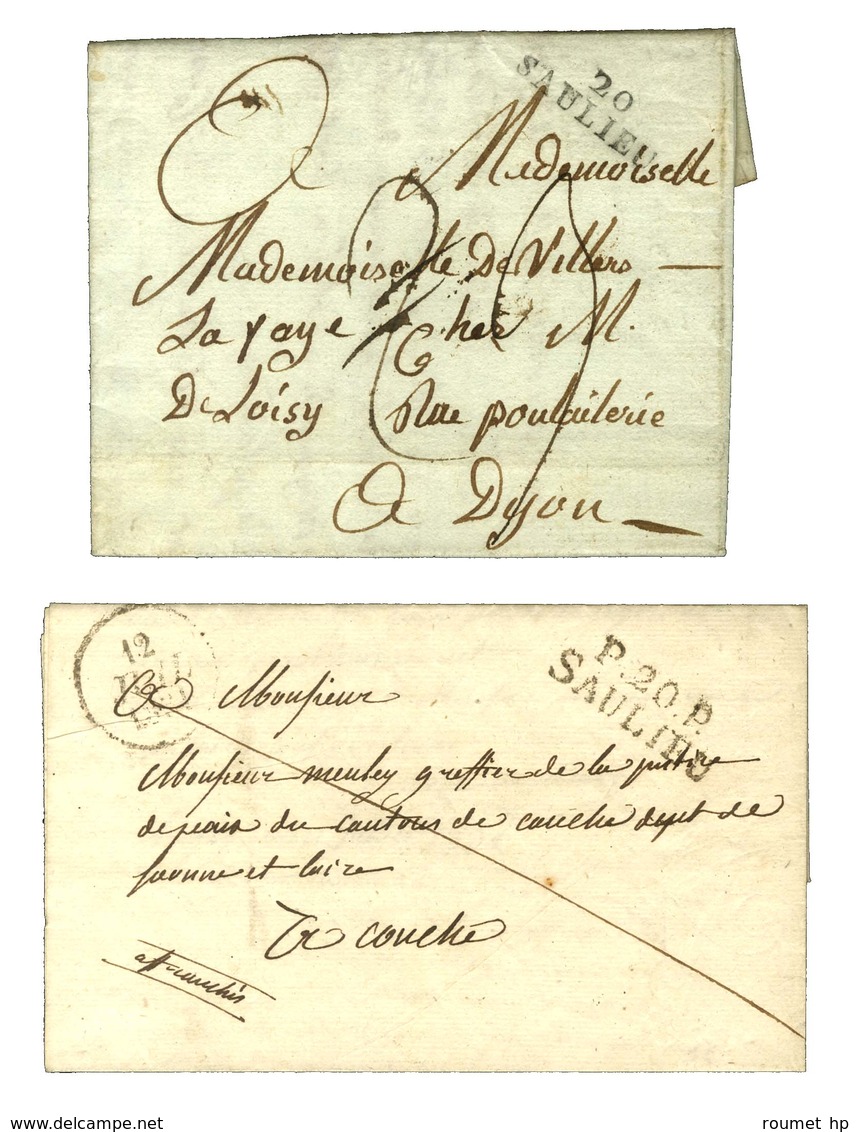 20
SAULIEU
A Mademoiselle
Mademoiselle De Villers
La faye Chés M.
De Loisy Rue poulailerie
A Dijon
12
JUIL
P.20.P.
SAULIEU
A Monsieur
Monsieur meuley greffier de la justice
depaix du cantons de couche dept de
saonne et loire
A couche
affranchis
delcampe.net
roumet hp